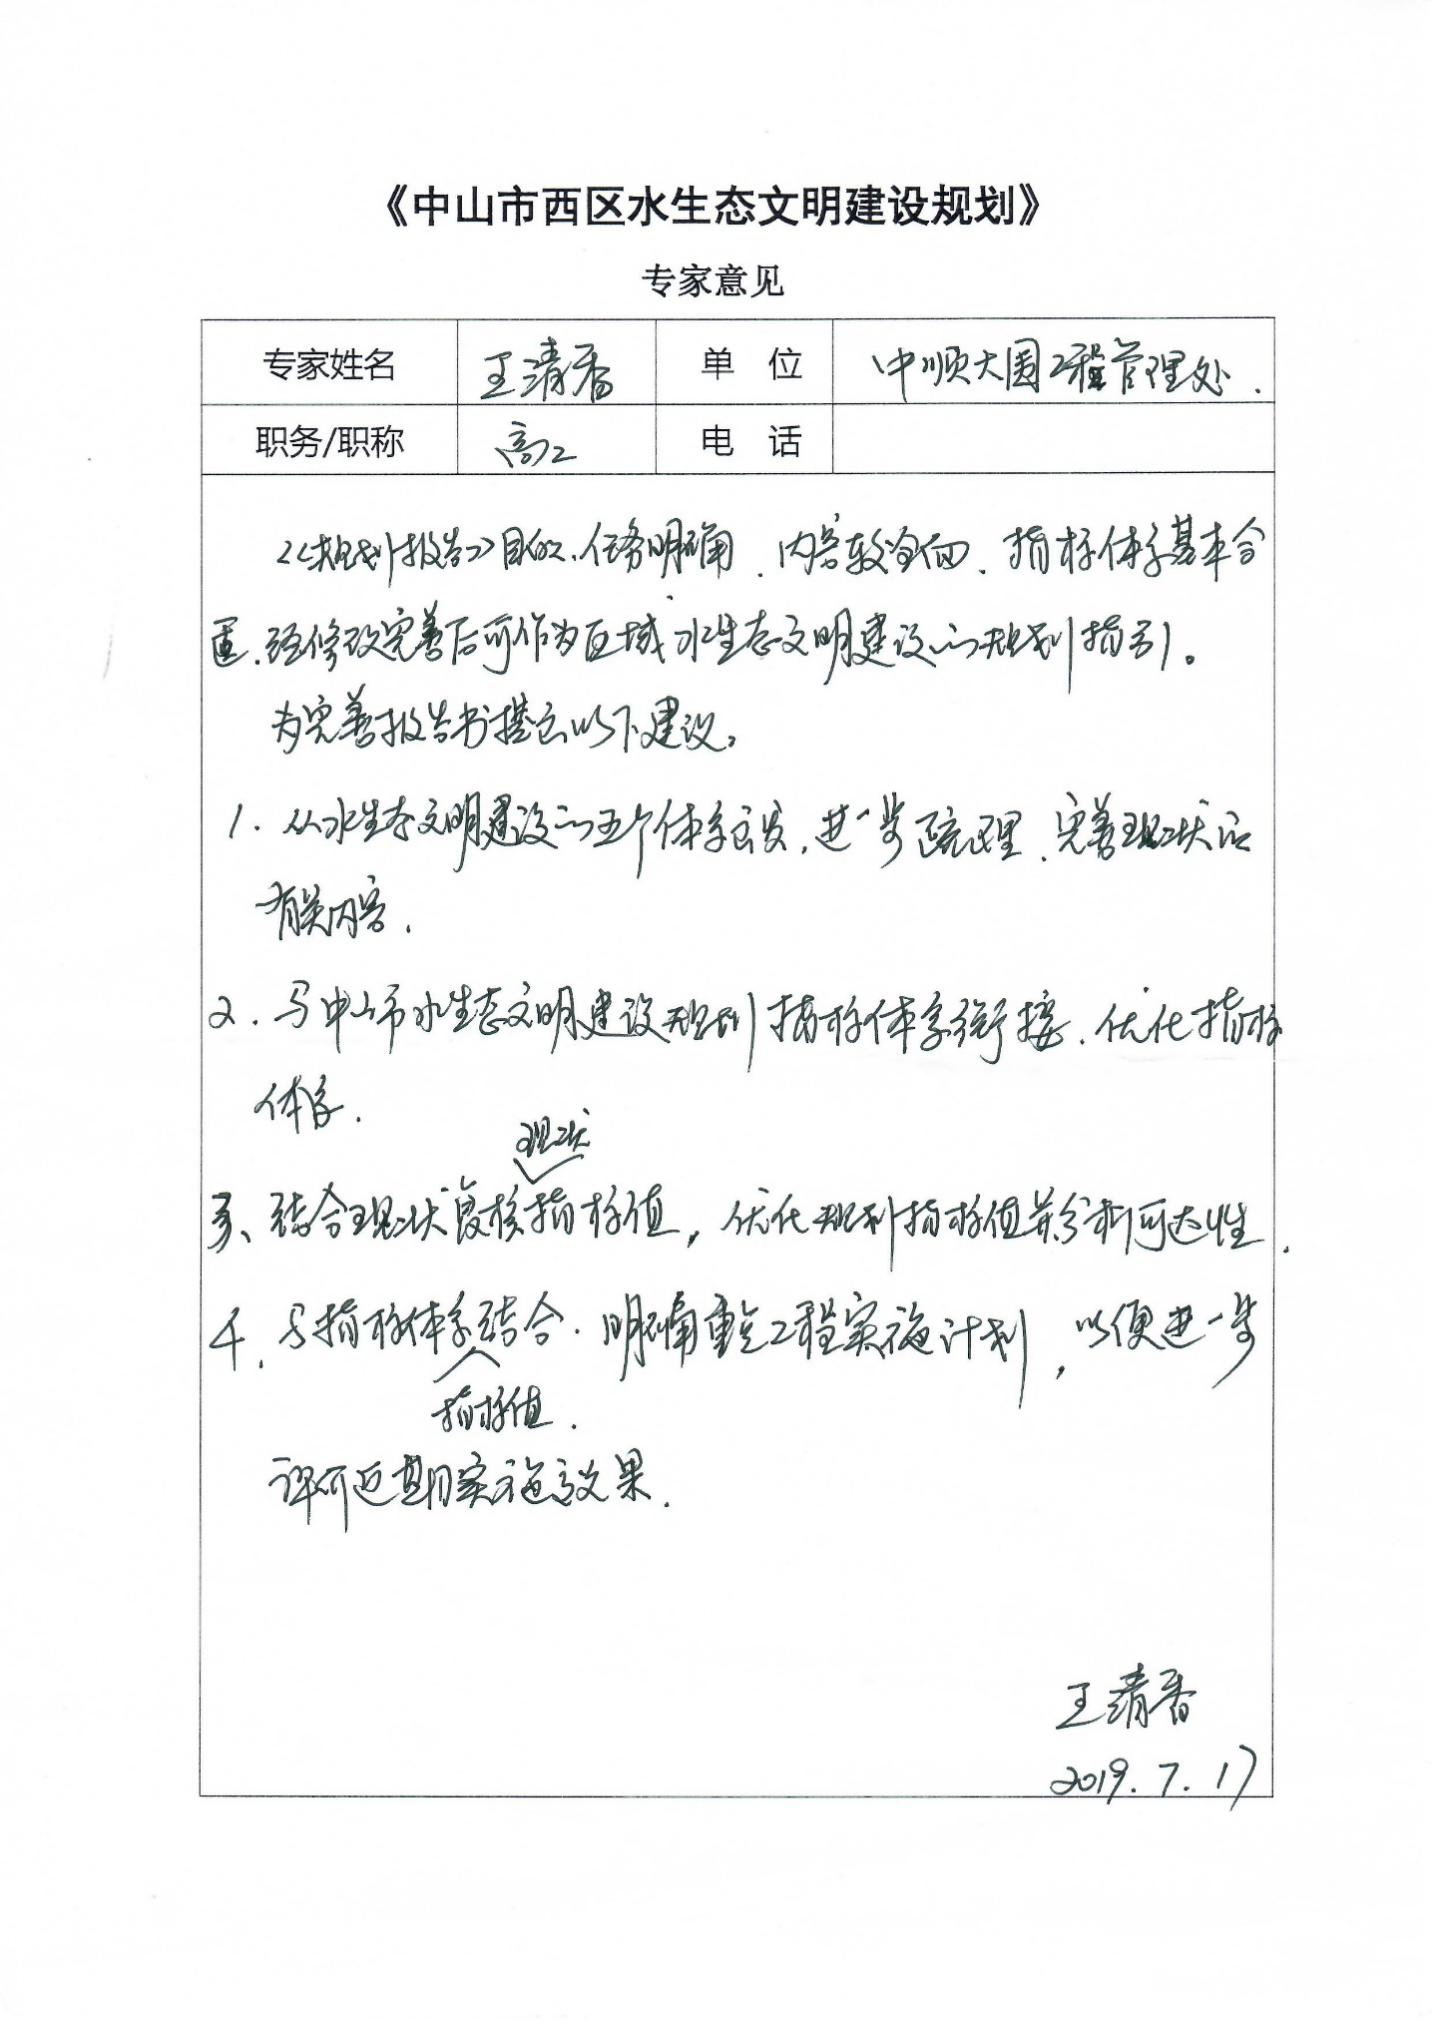 《中山市西区水生态文明建设规划》
专家意见
专家姓名 王清香 单位 中顺大围工程管理处.
职务/职称 高工 电话
《规划报告》目的、任务明确、内容较全面、指标体系基本合
适、经修改完善后可作为区域水生态文明建设的规划指引。
为完善报告书提出以下建议。
1. 从水生态文明建设的五个体系出发,进一步梳理、完善现状的
有关内容.
2. 与中山市水生态文明建设规划指标体系衔接、优化指标
体系.
现状
3、结合现状复核指标值,优化规划指标值并分析可达性.
4. 与指标体系结合.明确重点工程实施计划,以便进一步
指标值.
评价近期实施效果.
王清香
2019.7.17